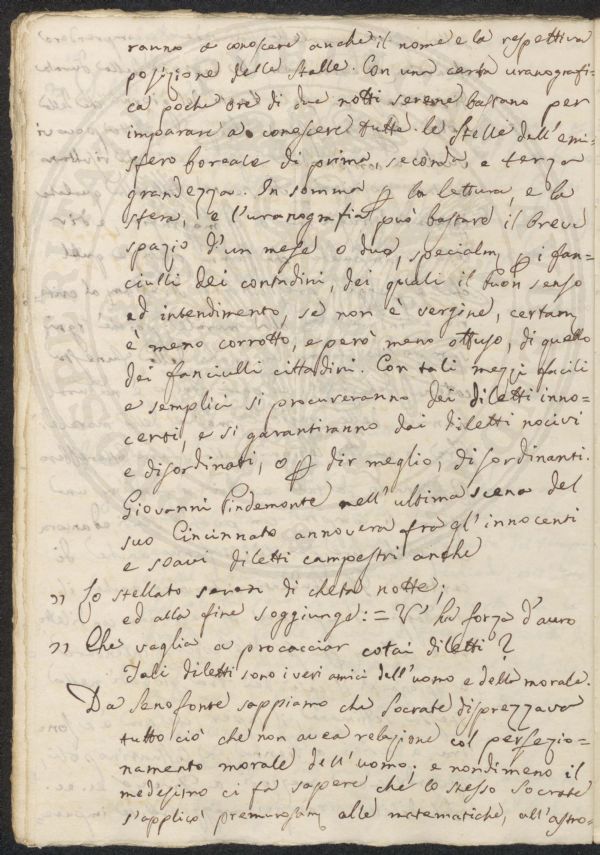 ranno a conoscere anche il nome e la respettiva
posizione delle stelle. Con una certa uranografi-
ca poche ore di due notti serene bastano per
imparare a conoscere tutte le stelle dell'emi-
sfero boreale di prima, seconda e terza
grandezza. In somma p la lettura, e la
sfera, e l'uranografia può bastare il breve
spazio d'un mese o due, specialm p i fan-
ciulli dei contadini, dei quali il buon senso
ed intendimento, se non è vergine, certam
è meno corrotto, e però meno ottuso, di quello
dei fanciulli cittadini. Con tali mezzi facili
e semplici si procureranno dei diletti inno-
centi, e si garantiranno dai diletti nocivi
e disordinati, o p dir meglio, disordinanti.
Giovanni Pindemonte nell'ultima scena del
suo Cincinnato annovera fra gl'innocenti
e soavi diletti campestri anche
" Lo stellato seren di cheta notte;
ed alla fine soggiunge: = V'ha forza d'auro
" Che vaglia a procacciar cotai diletti?
Tali diletti sono i veri amici dell'uomo e della morale.
Da Senofonte sappiamo che Socrate disprezzava
tutto ciò che non avea relazione col perfezio-
namento morale dell'uomo; e nondimeno il
medesimo ci fa sapere che lo stesso Socrate
s'applicò premurosam alle matematiche, all'astro-